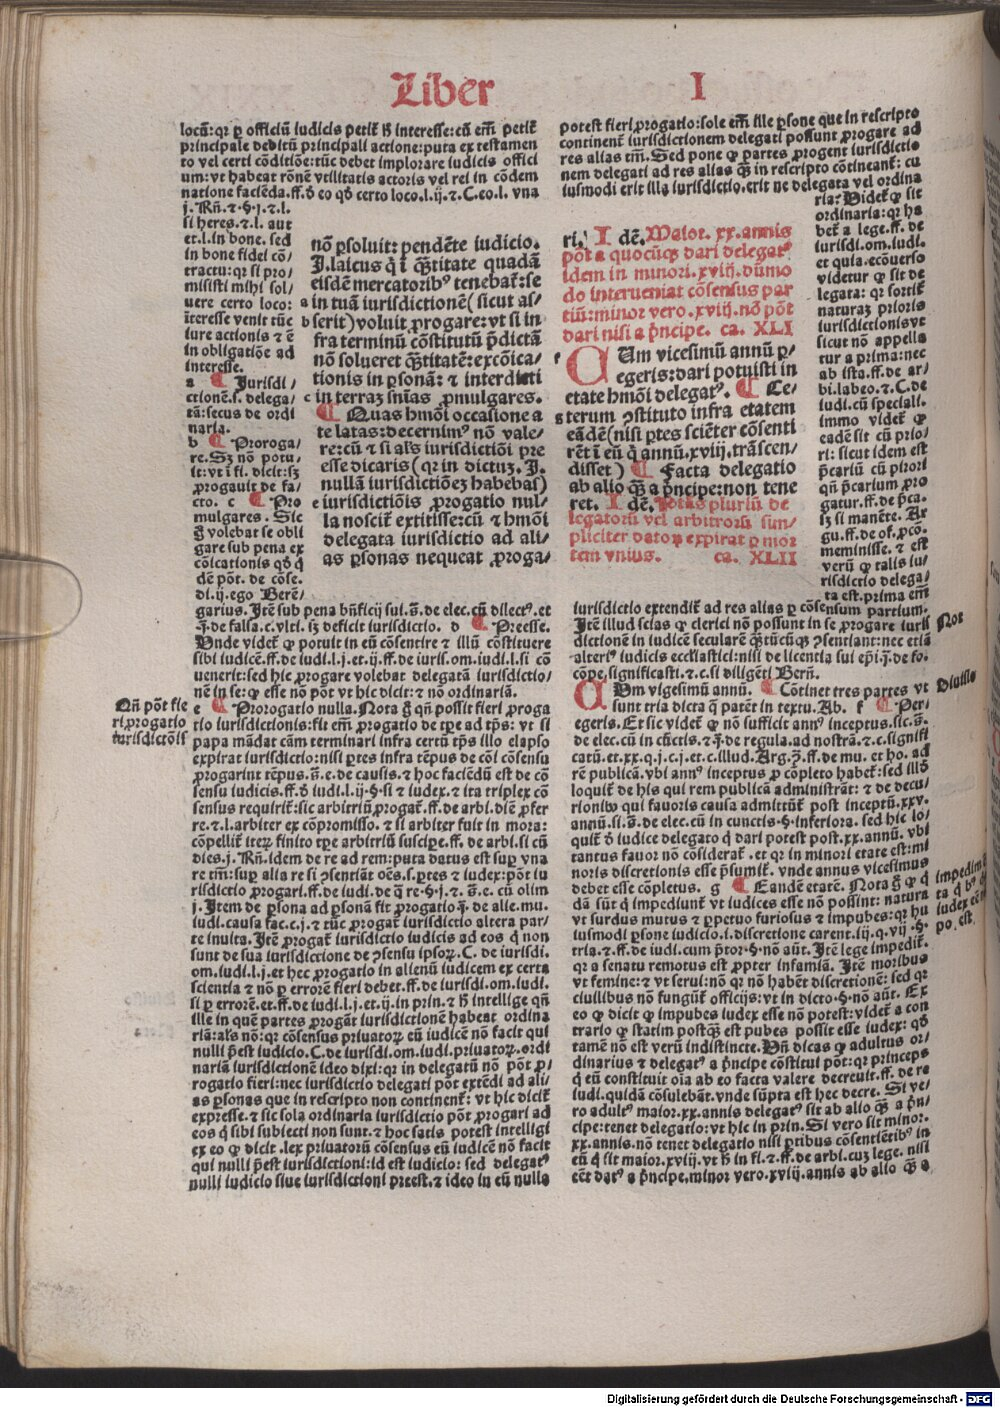 Liber I
locū: qr ꝑ officiū iudicis petit̄ ħ interesse: cū em̄ petit̄
principale debitū principali actione: puta ex testamen
to vel certi cōditiōe: tūc debet implorare iudicis offici
um: vt habeat rōnē vtilitatis actoris vel rei in cōdem
natione faciēda. ff. ð eo qð certo loco. l. ij. ⁊ C. eo. l. vna
j. Rñ. ⁊ .§. j. ⁊ .l.
si heres. ⁊ .l. aut
et. l. in bone. sed
in bone fidei cō/
tractu: qr si pro/
misisti mihi sol/
uere certo loco:
īteresse venit tūc
iure actionis ⁊ ē
in obligatiōe ad
interesse.
a ¶ Jurisdi/
ctionē. s. delega/
tā: secus de ordi
naria.
b ¶ Proroga/
re. Sꝫ non potu/
it: vt ī fi. dicit: sꝫ
ꝓrogauit de fa/
cto. c ¶ Pro
mulgares. Sic
ḡ volebat se obli
gare sub pena ex
cōicationis qð q̇
dē pōt. de cōse.
di. ij. ego Berē/
nō ꝑsoluit: pendēte iudicio.
J. laicus q̇ ī q̄ꝫtitate quadā
eisdē mercatoribꝰ tenebat̄: se
a in tuā iurisdictionē (sicut as/
b serit) voluit ꝓrogare: vt si in
fra terminū cōstitutū p̄dictā
nō solueret q̄ꝫtitatē: excōica/
tionis in ꝑsonā: ⁊ interdicti
c in terraꝫ sn̄ias ꝓmulgares.
¶ Quas hmōi occasione a
te latas: decernimꝰ nō vale/
re: cū ⁊ si al's iurisdictiōi pre
esse dicaris (qr in dictuꝫ. J.
nullā iurisdictiōeꝫ habebas)
e iurisdictiōis ꝓrogatio nul/
la noscit̄ extitisse: cū ⁊ hmōi
delegata iurisdictio ad ali/
as ꝑsonas nequeat ꝓroga/
garius. Itē sub pena bn̄ficij sui. ā. de elec. cū dilectꝰ. et
j. de falsa. c. vlti. sꝫ deficit iurisdictio. d ¶ Preesse.
Vnde videt̄ ꝙ potuit in eū cōsentire ⁊ illū cōstituere
sibi iudicē. ff. de iudi. l. j. et. ij. ff. de iuris. om. iudi. l. si cō
uenerit: sed hic ꝓrogare volebat delegatā iurisdictio/
nē in se: ꝙ esse nō pōt vt hic dicit: ⁊ nō ordinariā.
Qn̄ pōt fie
ri ꝓrogatio
iurisdictōis
e ¶ Prorogatio nulla. Nota ḡ qn̄ possit fieri ꝓroga
tio iurisdictionis: fit em̄ ꝓrogatio de tꝑe ad tp̄s: vt si
papa mādat cām terminari infra certū tp̄s illo elapso
expirat iurisdictio: nisi ꝑtes infra tēpus de cōi cōsensu
ꝓrogarint tēpus. ā. e. de causis. ⁊ hoc faciēdū est de cō
sensu iudicis. ff. ð iudi. l. ij. §. si ⁊ iudex. ⁊ ita triplex cō
sensus requirit̄: sic arbitriū ꝓrogat̄. ff. de arbi. diē ꝓfer
re. ⁊ .l. arbiter ex cōpromisso. ⁊ si arbiter fuit in mora:
cōpellit̄ iteꝝ finito tꝑe arbitriū suscipe. ff. de arbi. si cū
dies. j. Rñ. idem de re ad rem: puta datus est suꝑ vna
re tm̄: suꝑ alia re si ↄsentiāt oēs. s. ꝑtes ⁊ iudex: pōt iu
risdictio ꝓrogari. ff. de iudi. de q̄ re. §. j. ⁊ .ā. e. cū olim
j. Item de ꝑsona ad ꝑsonā fit ꝓrogatio q̇. de alie. mu.
iudi. causa fac. c. j. ⁊ tūc ꝓrogat̄ iurisdictio altera par/
te inuita. Itē ꝓrogat̄ iurisdictio iudicis ad eos q̇ non
sunt de sua iurisdictione de ↄsensu ipsoꝝ. C. de iurisdi.
om. iudi. l. j. et hec ꝓrogatio in alienū iudicem ex certa
scientia ⁊ nō ꝑ errorē fieri debet. ff. de iurisdi. om. iudi.
si ꝑ errorē. et. ff. de iudi. l. j. et. ij. in prin. ⁊ ħ intellige qn̄
ille in quē partes ꝓrogāt iurisdictionē habeat ordina
riā: als nō: qr cōsensus priuatoꝝ eū iudicē nō facit qui
nulli p̄est iudicio. C. de iurisdi. om. iudi. priuatoꝝ. ordi
nariā iurisdictionē ideo dixi: qr in delegatū nō pōt ꝓ/
rogatio fieri: nec iurisdictio delegati pōt extēdi ad ali/
as ꝑsonas que in rescripto non continent̄: vt hic dicit̄
expresse. ⁊ sic sola ordinaria iurisdictio pōt ꝓrogari ad
eos q̇ sibi subiecti non sunt. ⁊ hoc satis potest intelligi
ex eo ꝙ dicit̄. lex priuatorū cōsensus eū iudicē nō facit
qui nulli p̄est iurisdictioni: id est iudicio: sed delegatꝰ
nulli iudicio siue iurisdictioni preest. ⁊ ideo in eū nulla
potest fieri ꝓrogatio: sole em̄ ille ꝑsone que in rescripto
continent̄ iurisdictionem delegati possunt ꝓrogare ad
res alias tm̄. Sed pone ꝙ partes ꝓrogent iurisdictio
nem delegati ad res alias q̄ꝫ in rescripto cōtineant̄: cu
iusmodi erit illa iurisdictio. erit ne delegata vel ordina
ria? Videt̄ ꝙ sit
ordinaria: qr ha
bet̄ a lege. ff. de
iurisdi. om. iudi.
et quia. ecōuerso
videtur ꝙ sit de
legata: qr sortit̄
naturaꝫ prioris
iurisdictionis vt
sicut nō appella
tur a prima: nec
ab ista. ff. de ar/
bi. labeo. ⁊ C. de
iudi. cū speciali.
immo videt̄ ꝙ
eadē sit cū prio/
ri: sicut idem est
p̄cariū cū priori
qn̄ p̄carium ꝓro
gatur. ff. de p̄ca.
lꝫ si manēte. Ar
gu. ff. de of. ꝓcō.
meminisse. ⁊ est
verū ꝙ talis iu/
risdictio delega/
ta est. prima em̄
ri. Idē. Maior. xx. annis
pōt a quocūqꝫ dari delegatꝰ
idem in minori. xviij. dūmo
do interueniat cōsensus par
tiū: minor vero. xviij. nō pōt
dari nisi a p̄ncipe. ca. XLI
f CUm vicesimū annū ꝑ/
egeris: dari potuisti in
etate hmōi delegatꝰ. ¶ Ce/
g terum ↄstituto infra etatem
eādē (nisi ꝑtes sciēter cōsenti
rēt ī eū q̇ annū. xviij. trāscen/
disset) ¶ facta delegatio
ab alio q̄ꝫ a p̄ncipe: non tene
ret. Idē. Potꝰas pluriū de
legatorū vel arbitrorū sim/
pliciter datoꝝ expirat ꝑ mor
tem vnius. ca. XLII
iurisdictio extendit̄ ad res alias ꝑ cōsensum partium.
Itē illud scias ꝙ clerici nō possunt in se ꝓrogare iuris
dictionē in iudicē secularē q̄ꝫtūcūqꝫ ↄsentiant: nec etiā
alteriꝰ iudicis ecclīastici: nisi de licentia sui ep̄i. j. de fo.
cōpe. significasti. ⁊ .c. si diligēti Bern̄.
Not
CUm vigesimū annū. ¶ Cōtinet tres partes vt
sunt tria dicta q̇ patēt in textu. Ab. f ¶ Per/
egeris. Et sic videt̄ ꝙ nō sufficit annꝰ inceptus. sic. ā.
de elec. cū in cūctis. ⁊ .j. de regula. ad nostrā. ⁊ .c. signifi
catū. et. xx. q. j. c. j. et. c. illud. Arg. ↄ̄. ff. de mu. et ho. ad
rē publicā. vbi annꝰ inceptus ꝓ cōpleto habet̄: sed illð
loquit̄ de his qui rem publicā administrāt: ⁊ de decu/
rionibꝰ qui fauoris causa admittūt̄ post inceptū. xxv.
annū. si. ā. de elec. cū in cunctis. §. inferiora. sed hic lo/
quit̄ ð iudice delegato q̇ dari potest post. xx. annū. vbi
tantus fauor nō cōsiderat̄. et qr in minori etate est: mi
noris discretionis esse p̄sumit̄. vnde annus vicesimus
debet esse cōpletus. g ¶ Eandē etatē. Nota ḡ ꝙ q̇
dā sūt q̇ impediunt̄ vt iudices esse nō possint: natura
vt surdus mutus ⁊ ꝑpetuo furiosus ⁊ impubes: qr hu
iusmodi ꝑsone iudicio. i. discretione carent. iij. q. vij. §.
tria. ⁊ .ff. de iudi. cum p̄tor. §. nō aūt. Itē lege impedit̄.
qr a senatu remotus est ꝓpter infamiā. Itē moribus
vt femine: ⁊ vt serui: nō qr nō habēt discretionē: sed qr
ciuilibus nō fungūt̄ officijs: vt in dicto. §. nō aūt. Ex
eo ꝙ dicit̄ ꝙ impubes iudex esse nō potest: videt̄ a con
trario ꝙ statim postq̄ꝫ est pubes possit esse iudex: qð
tamē nō est verū indistincte. Vn̄ dicas ꝙ adultus or/
dinarius ⁊ delegatꝰ a p̄ncipe cōstitui pōt: qr princeps
q̇ eū constituit oīa ab eo facta valere decreuit. ff. de re
iudi. quidā cōsulebāt. vnde sūpta est hec decre. Si ve/
ro adultꝰ maior. xx. annis delegatꝰ sit ab alio q̄ꝫ a p̄n/
cipe: tenet delegatio: vt hic in prin. Si vero sit minor.
xx. annis. nō tenet delegatio nisi ꝑtibus cōsentiētibꝰ in
eū q̇ sit maior. xviij. vt ħ in fi. ⁊ .ff. de arbi. cuꝫ lege. nisi
eēt datꝰ a p̄ncipe. minor vero. xviij. annis ab alio q̄ꝫ a
Diuisio
Digitalisierung gefördert durch die Deutsche Forschungsgemeinschaft - DFG